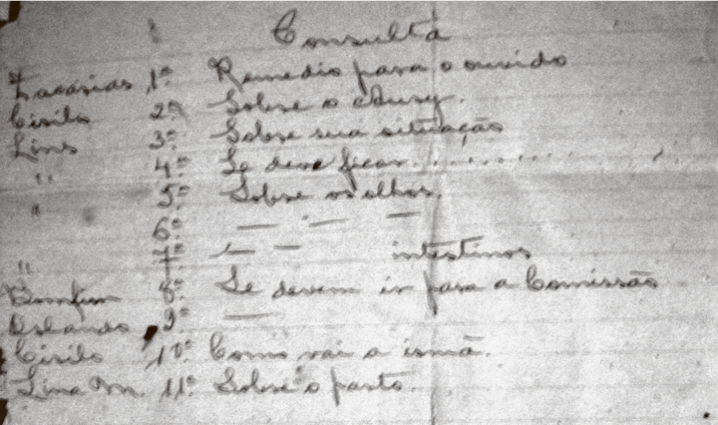 Consulta
Zacarias 1º Remedio para o ouvido
Cirilo 2º Sobre o
Lins 3º Sobre sua situação
" 4º Se deve ficar..............
" 5º Sobre os olhos.
6º — — —
" 7º — — intestinos
Bomfim 8º Se devem ir para a Comissão
Orlando 9º —
Cirilo 10º Como vai a irmã.
Lima M. 11º Sobre o parto.